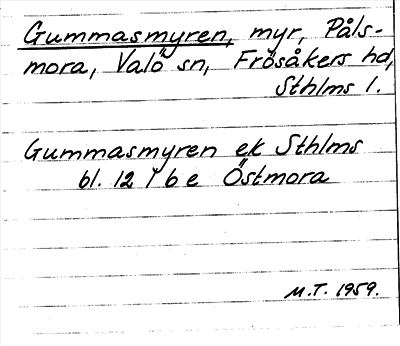 Gummasmyren, myr, Påls-
mora, Valö sn, Frösåkers hd,
Sthlms l.
Gummasmyren ek Sthlms
bl. 12 I 6 e Östmora
M.T. 1959.